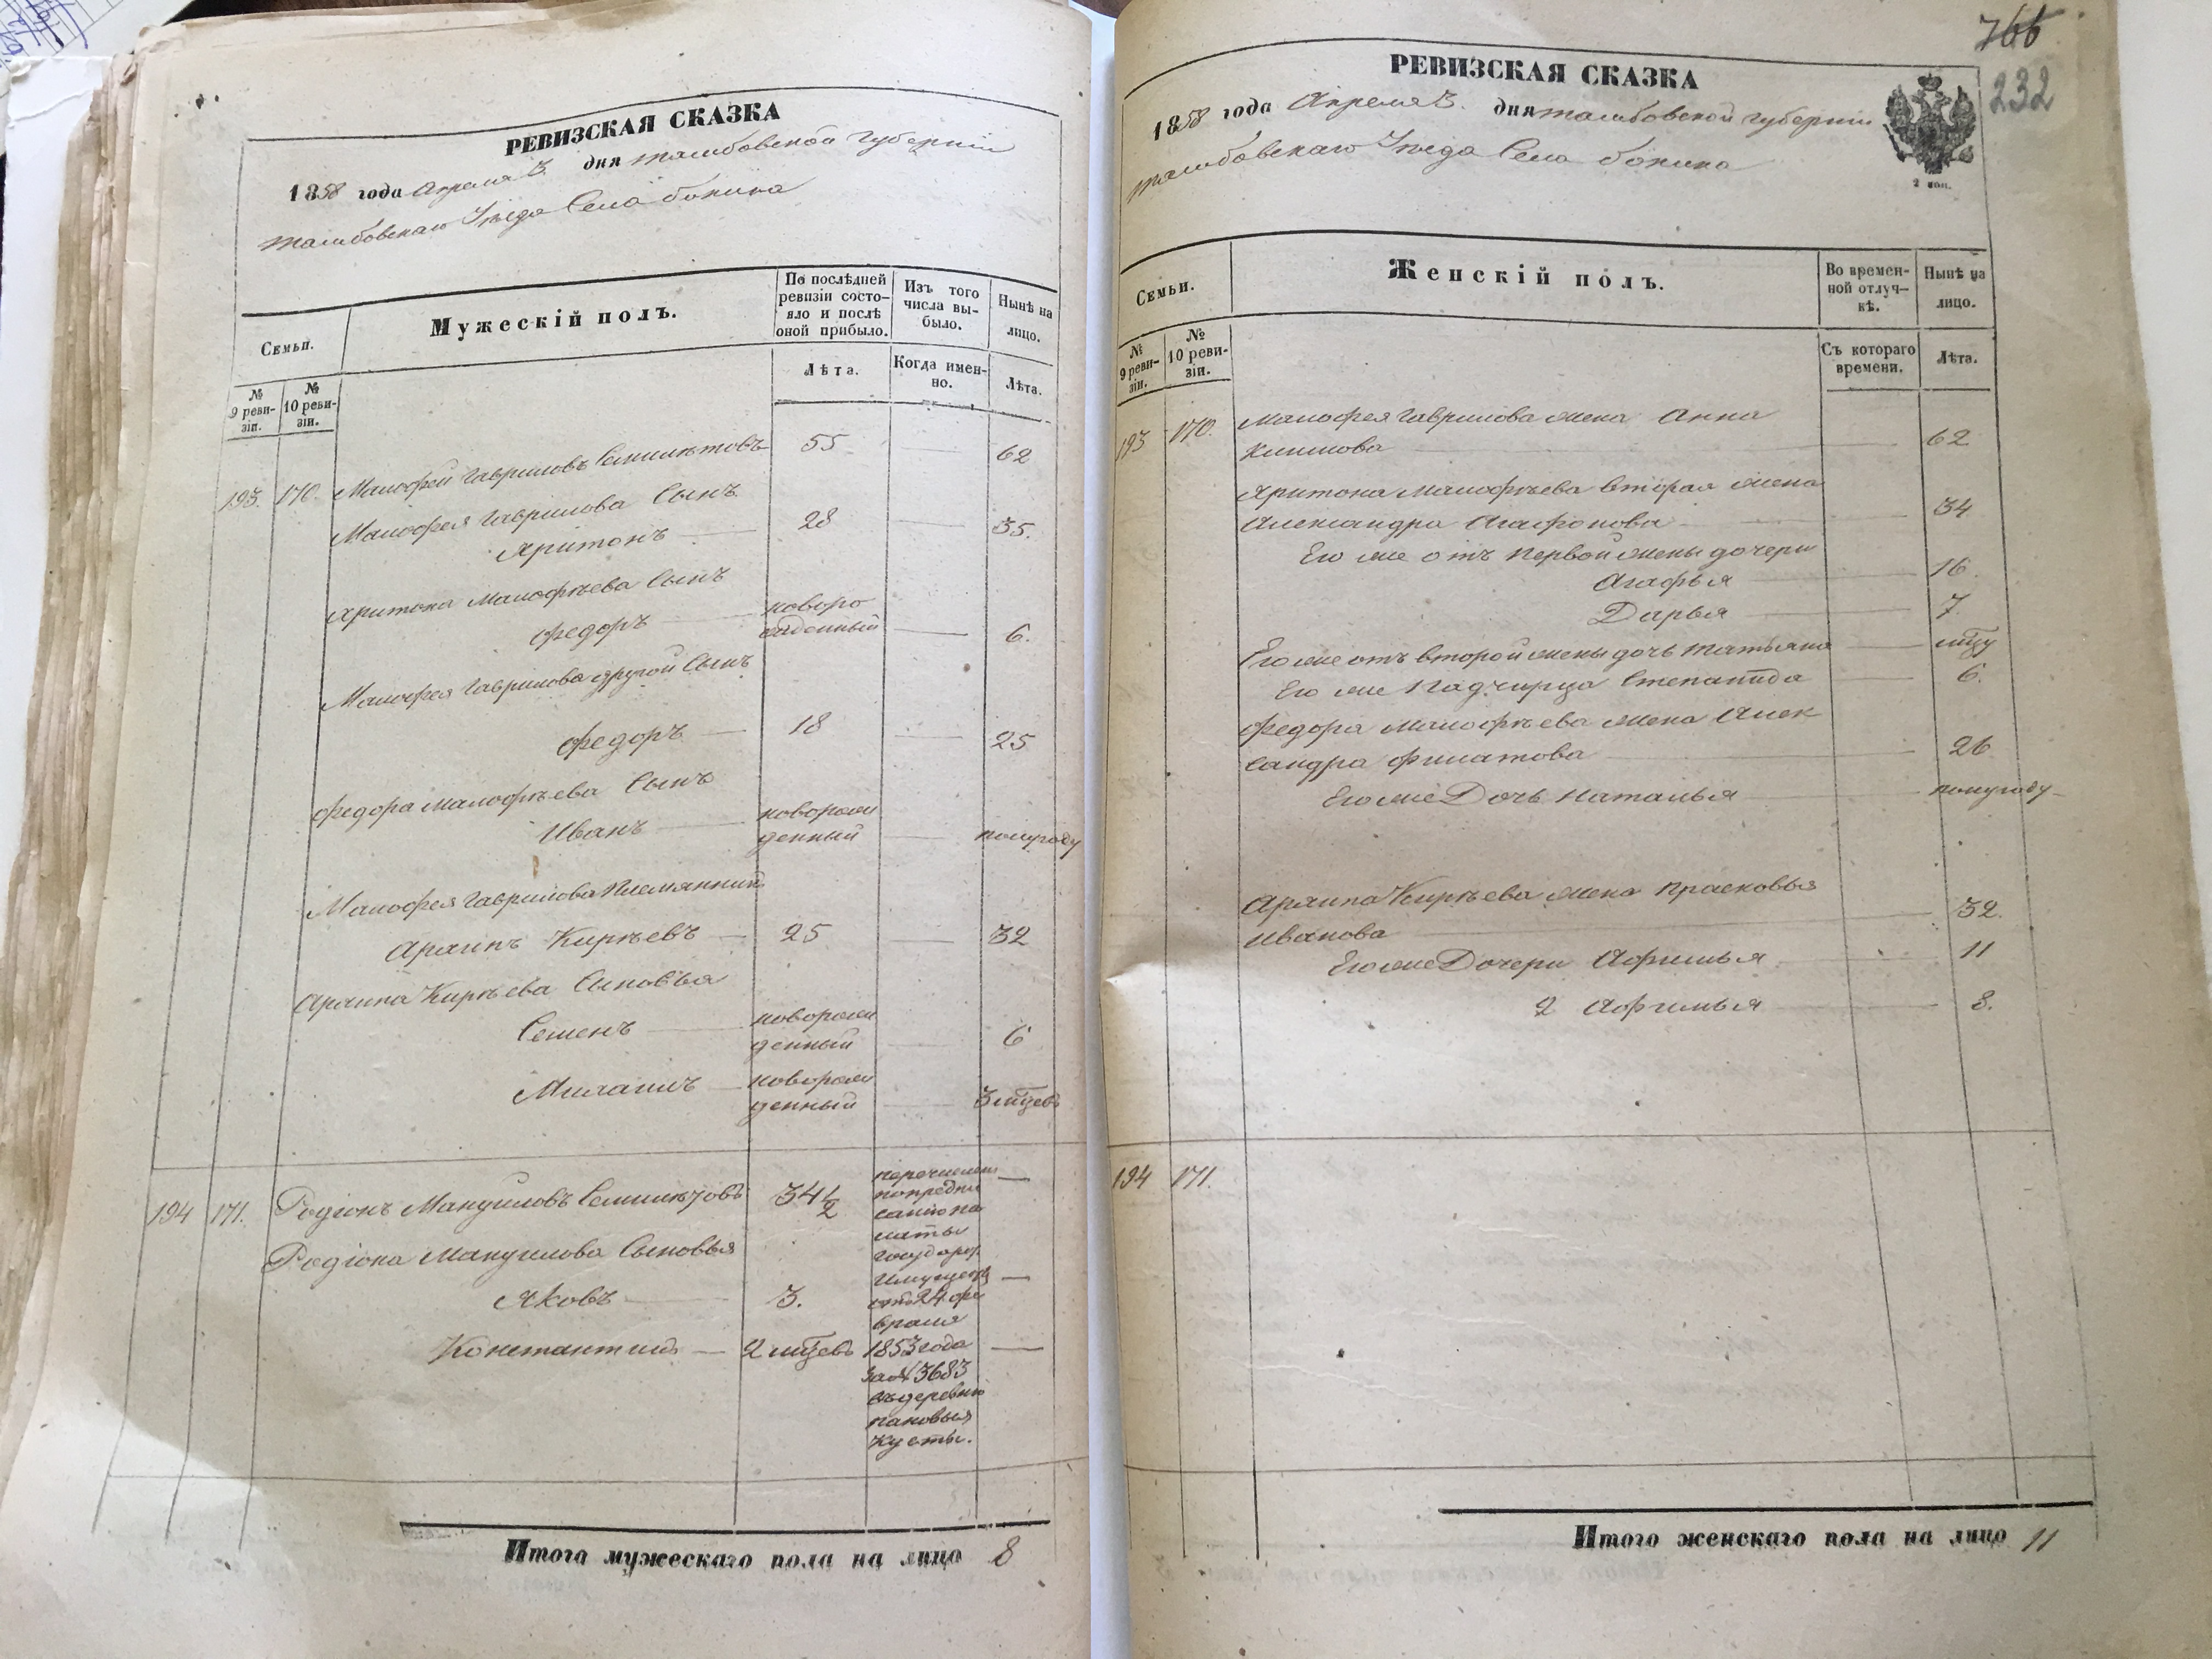 РЕВИЗСКАЯ СКАЗКА
1858 года Апреля 3 дня тамбовской губернии
тамбовскаго Уѣзда Села бокина
Семьи.
Мужескій полъ.
По послѣдней ревизіи состо-яло и послѣ оной прибыло.
Изъ того числа вы-было.
Ныне на лицо.
№ 9 реви-зіи.
№ 10 реви-зіи.
Лѣта.
Когда имен-но.
Лѣта.
193. 170. Малофей Гавриловъ Семилѣтовъ 55 — 62
Малофея Гаврилова Сынъ
Харитонъ — 28 — 35.
Харитона Малофѣева Сынъ
Федоръ — новоро
жденный — 6.
Малофея Гаврилова другой Сынъ
Федоръ — 18 — 25
Федора Малофѣева Сынъ
Иванъ — новорож
денный — полугоду
Малофея Гаврилова Племянникъ
Архипъ Кирѣевъ — 25 — 32
Архипа Кирѣева Сыновья
Семенъ — новорож
денный — 6
— новорож
денный — 3 мцевъ
194 171. Родіонъ Мануиловъ Семилѣтовъ 34 1/2
перечислен
по предпи
санію па
латы
государ.
имуществ
отъ 24 фе
враля
1853 года
за № 3683
въ деревню
пановыя
кусты. —
Родіона Мануилова Сыновья
Яковъ — 3. —
Константинъ — 2 мцевъ —
Итого мужескаго пола на лицо 8
766
232
РЕВИЗСКАЯ СКАЗКА
1858 года Апреля 3. дня тамбовской губерніи
тамбовскаго Уѣзда Села бокина
2 коп.
Семьи.
Женскій полъ.
Во времен-ной отлуч-кѣ.
Нынѣ на лицо.
№ 9 реви-зіи.
№ 10 реви-зіи.
Съ котораго времени.
Лѣта.
193 170. Малофея Гаврилова жена Анна
Климова — 62
Харитона Малофѣева вторая жена
Александра Агафонова — 34
Его же отъ первой жены дочери
Агафья — 16.
Дарья — 7.
Его же отъ второй жены дочь татьяна — мцу
Его же Падчерица Степанида — 6.
Федора Малофѣева жена Алек
сандра Филатова — 26
Его же Дочь Наталья — полугоду
Архипа Кирѣева жена Прасковья
Иванова — 32.
Его же Дочери Афимья — 11
2 Афимья — 8.
194 171.
Итого женскаго пола на лицо 11